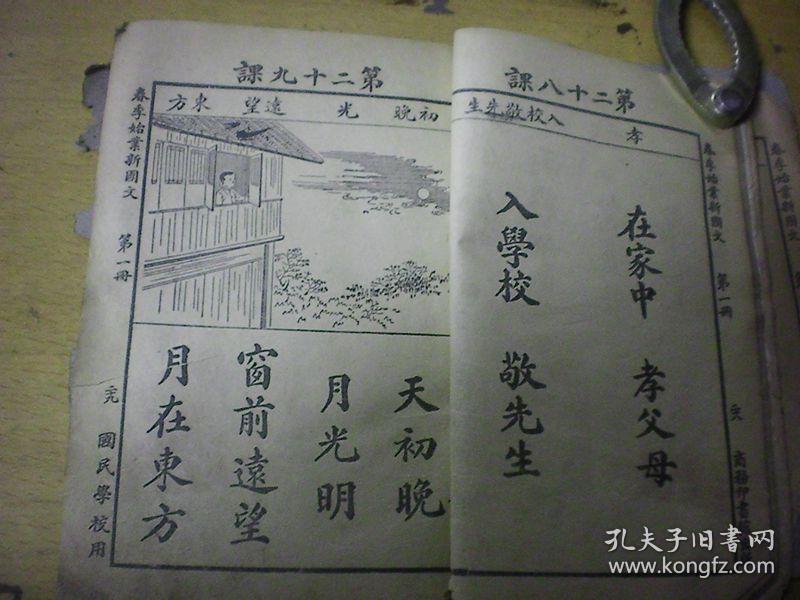 第二十八課
孝
入校敬先生
在家中 孝父母
入學校 敬先生
春季始業新國文 第一冊
六 商務印書
第二十九課
初晚
光
遠望
東方
天初晚
月光明
窗前遠望
月在東方
春季始業新國文 第一冊
國民學校用
孔夫子旧书网
www.kongfz.com